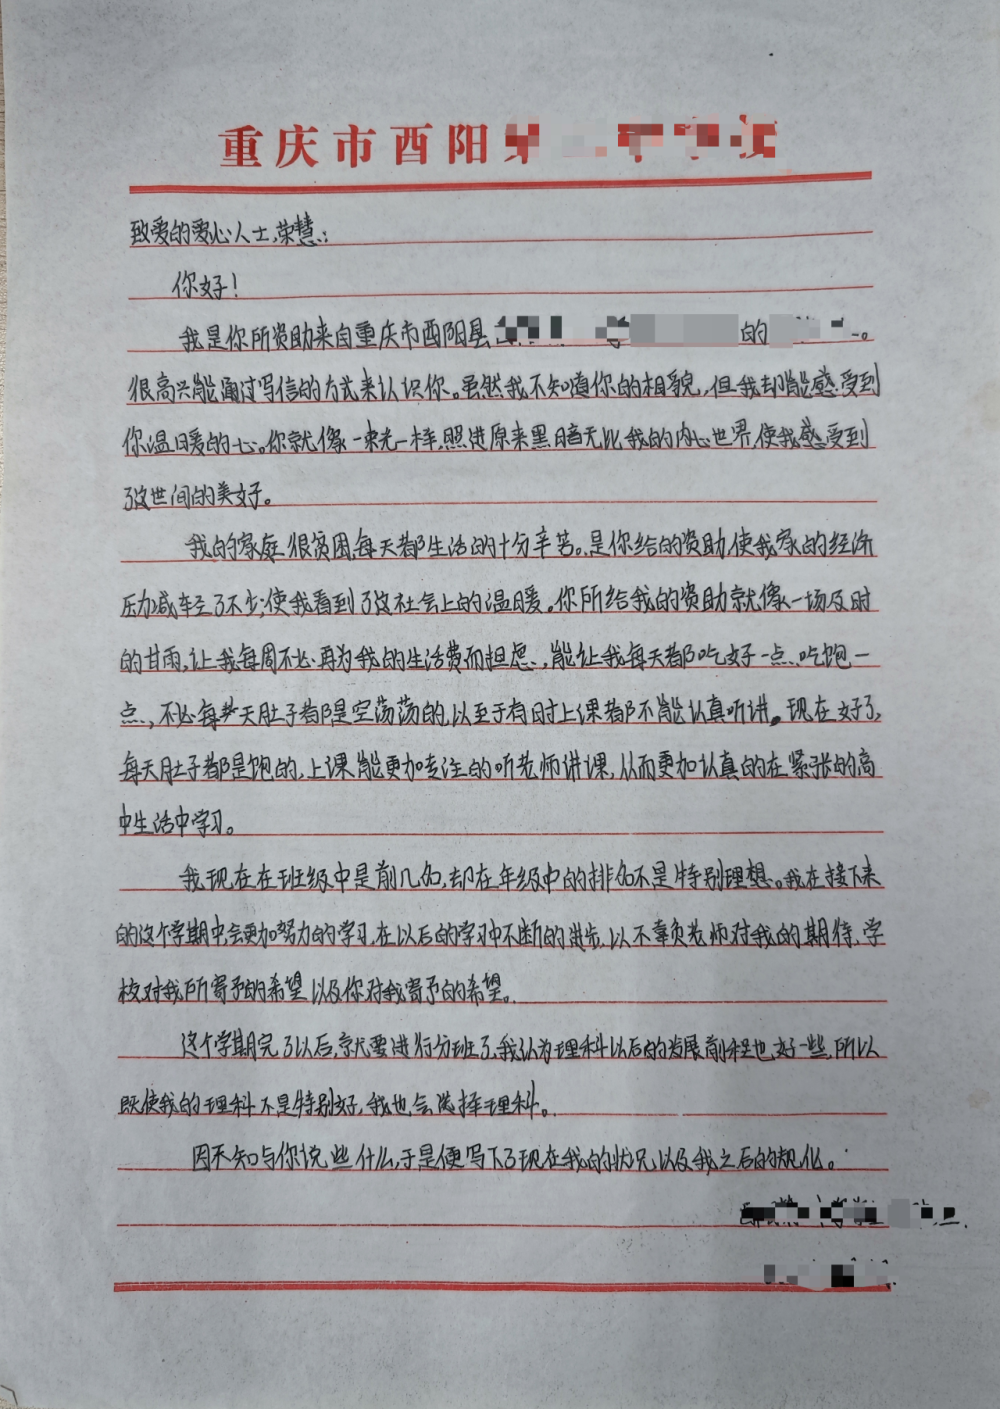 重庆市酉阳
致爱的爱心人士,荣慧:
你好!
我是你所资助来自重庆市酉阳县 的 。
很高兴能通过写信的方式来认识你。虽然我不知道你的相貌,但我却能感受到
你温暖的心。你就像一束光一样,照进原来黑暗无比我的内心世界,使我感受到
了这世间的美好。
我的家庭很贫困,每天都生活的十分辛苦。是你给的资助,使我家的经济
压力减轻了不少;使我看到了这社会上的温暖。你所给我的资助就像一场及时
的甘雨,让我每周不必再为我的生活费而担虑,能让我每天都吃好一点、吃饱一
点,不必每天肚子都是空荡荡的,以至于有时上课都不能认真听讲。现在好了,
每天肚子都是饱的,上课能更加专注的听老师讲课,从而更加认真的在紧张的高
中生活中学习。
我现在在班级中是前几名,却在年级中的排名不是特别理想。我在接下来
的这个学期中会更加努力的学习,在以后的学习中不断的进步,以不辜负老师对我的期待、学
校对我所寄予的希望以及你对我寄予的希望。
这个学期完了以后,就要进行分班了,我认为理科以后的发展前程也好一些,所以
既使我的理科不是特别好,我也会选择理科。
因不知与你说些什么,于是便写下了现在我的状况以及我之后的规化。